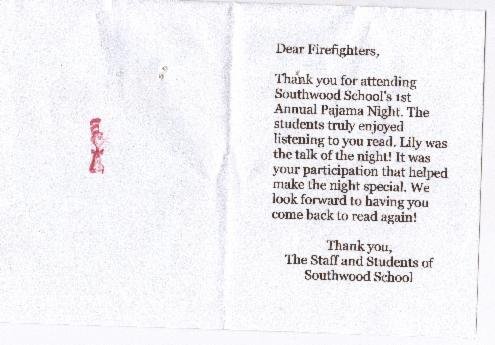 Dear Firefighters,
Thank you for attending
Southwood School's 1st
Annual Pajama Night. The
students truly enjoyed
listening to you read. Lily was
the talk of the night! It was
your participation that helped
make the night special. We
look forward to having you
come back to read again!
Thank you,
The Staff and Students of
Southwood School